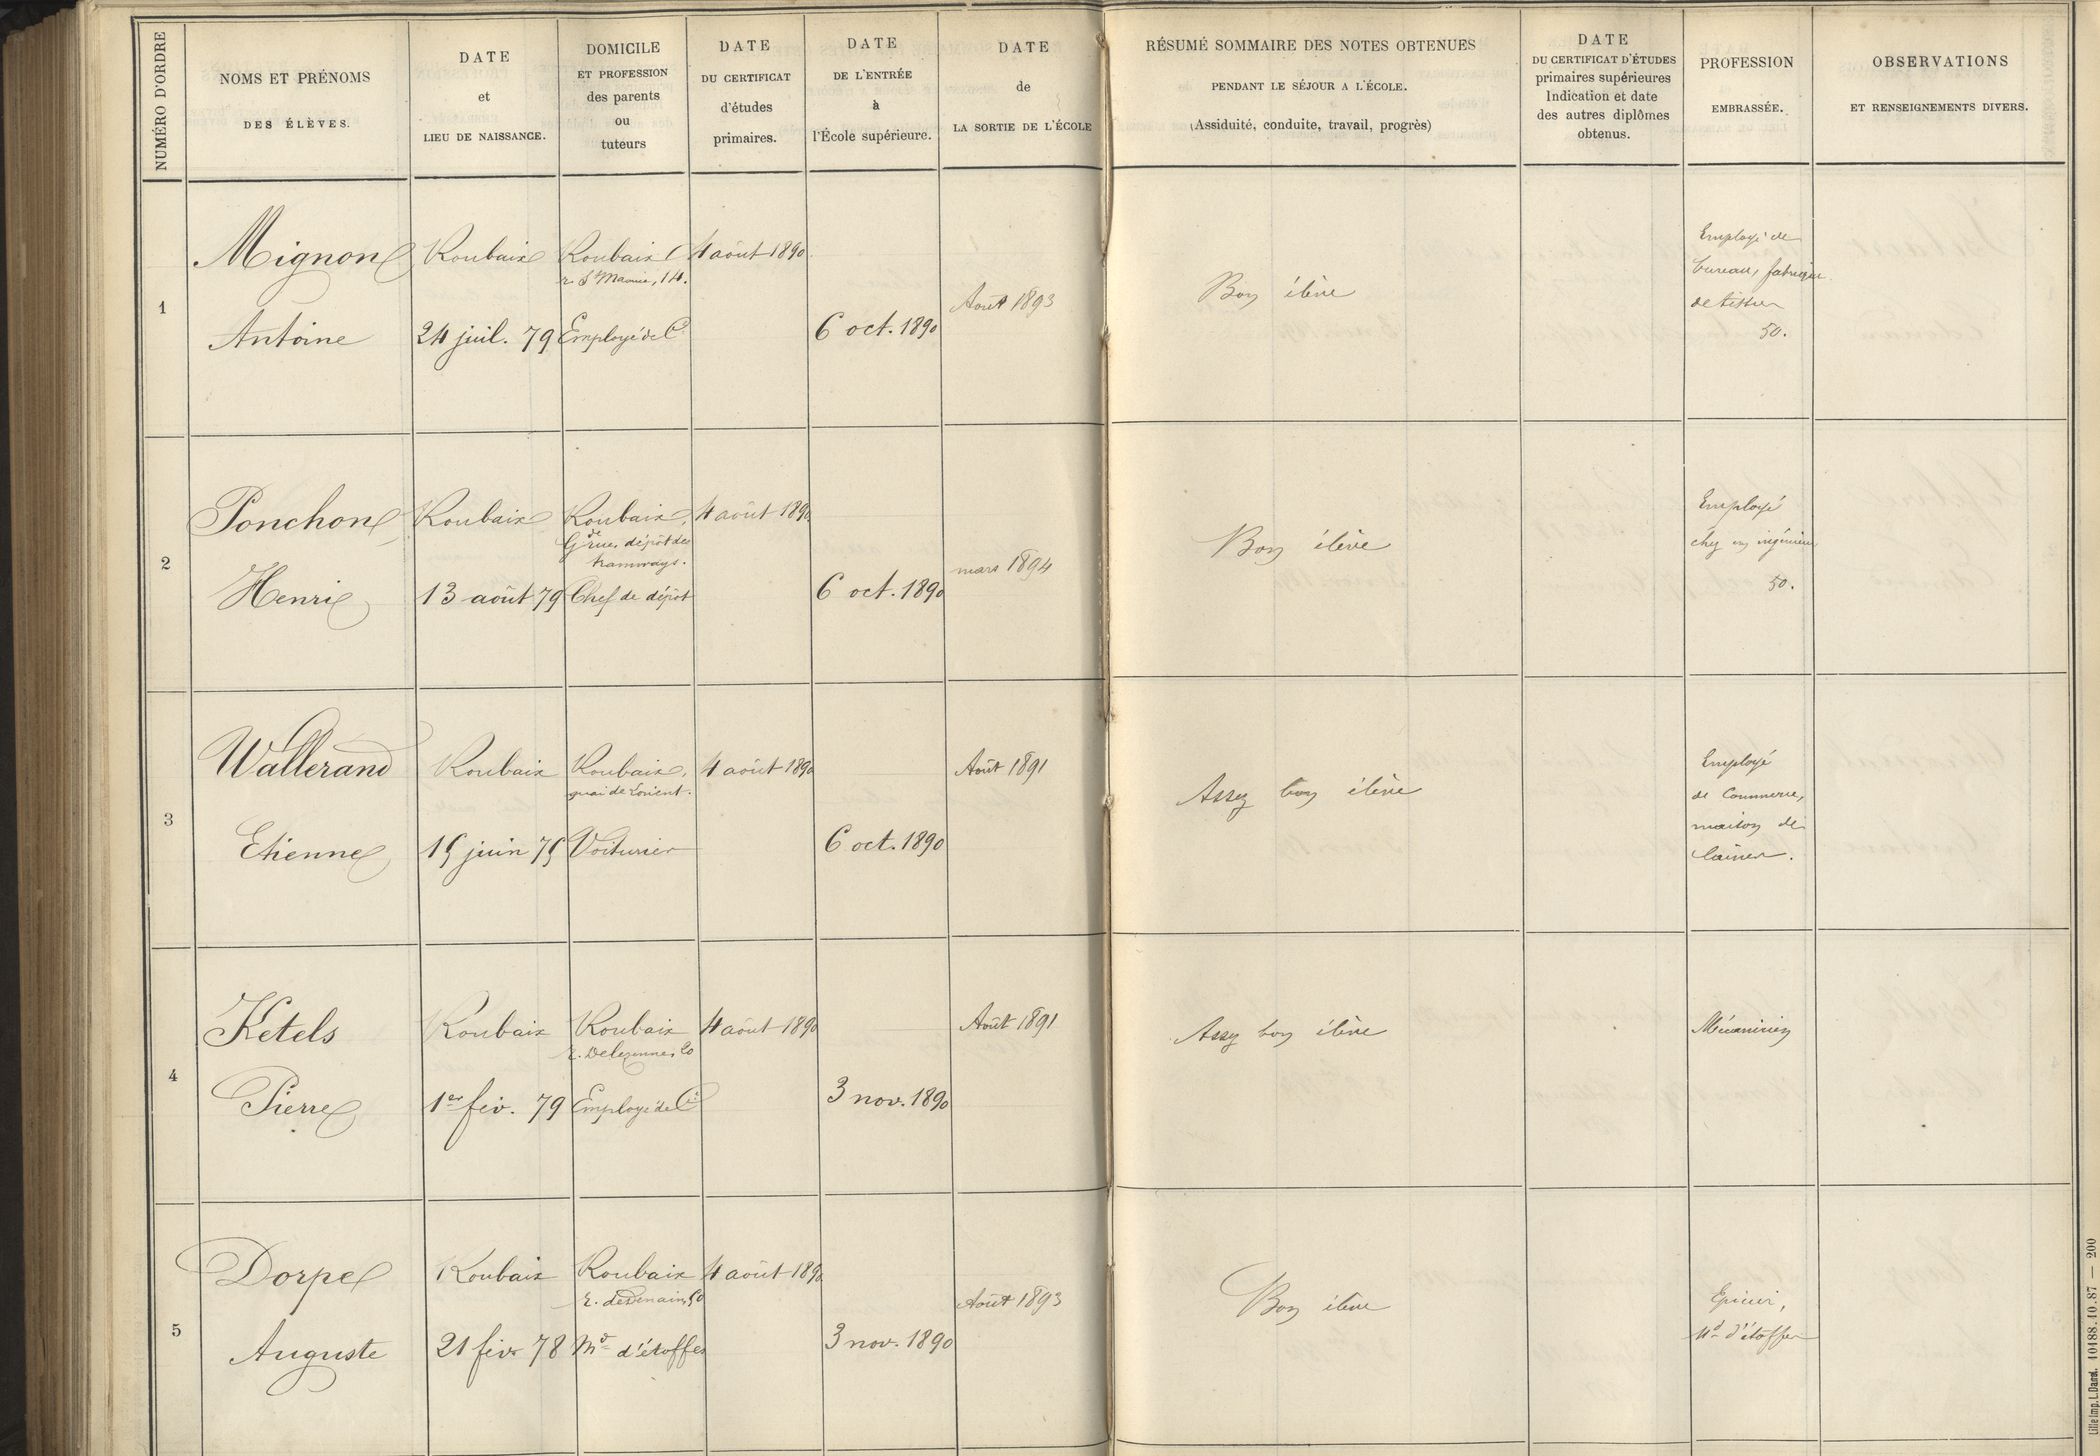 NUMÉRO D'ORDRE
NOMS ET PRÉNOMS
DES ÉLÈVES.
DATE
et
LIEU DE NAISSANCE.
DOMICILE
ET PROFESSION
des parents
ou
tuteurs
DATE
DU CERTIFICAT
d'études
primaires.
DATE
DE L'ENTRÉE
à
l'École supérieure.
DATE
de
LA SORTIE DE L'ÉCOLE
RÉSUMÉ SOMMAIRE DES NOTES OBTENUES
PENDANT LE SÉJOUR A L'ÉCOLE.
(Assiduité, conduite, travail, progrès)
DATE
DU CERTIFICAT D'ÉTUDES
primaires supérieures
Indication et date
des autres diplômes
obtenus.
PROFESSION
EMBRASSÉE.
OBSERVATIONS
ET RENSEIGNEMENTS DIVERS.
1
Mignon
Antoine
Roubaix
24 juil. 79
Roubaix
r. St Maurice, 114.
Employé de Ce
4 août 1890.
6 oct. 1890
Août 1893
Bon élève
Employé de
bureau, fabrique
de tissus
50.
2
Ponchon
Henri
Roubaix
13 août 79
Roubaix,
Gde rue, dépôt des
tramways.
Chef de dépôt
4 août 1890.
6 oct. 1890
mars 1894
Bon élève
Employé
chez un ingénieur
50.
3
Wallerand
Etienne
Roubaix
15 juin 75
Roubaix,
quai de Lorient.
Voiturier
4 août 1890
6 oct. 1890
Août 1891
Assez bon élève
Employé
de Commerce,
maison de
laines.
4
Ketels
Pierre
Roubaix
1er fév. 79
Roubaix
r. Delezenne, 20
Employé de Ce
4 août 1890
3 nov. 1890
Août 1891
Assez bon élève
Mécanicien
5
Dorpe
Auguste
Roubaix
21 févr 78
Roubaix
r. de Denain, 50
Md d'étoffes
4 août 1890
3 nov. 1890
Août 1893
Bon élève
Epicier,
Md d'étoffes
Lille Imp. L. Danel. 10188.10.87 — 200